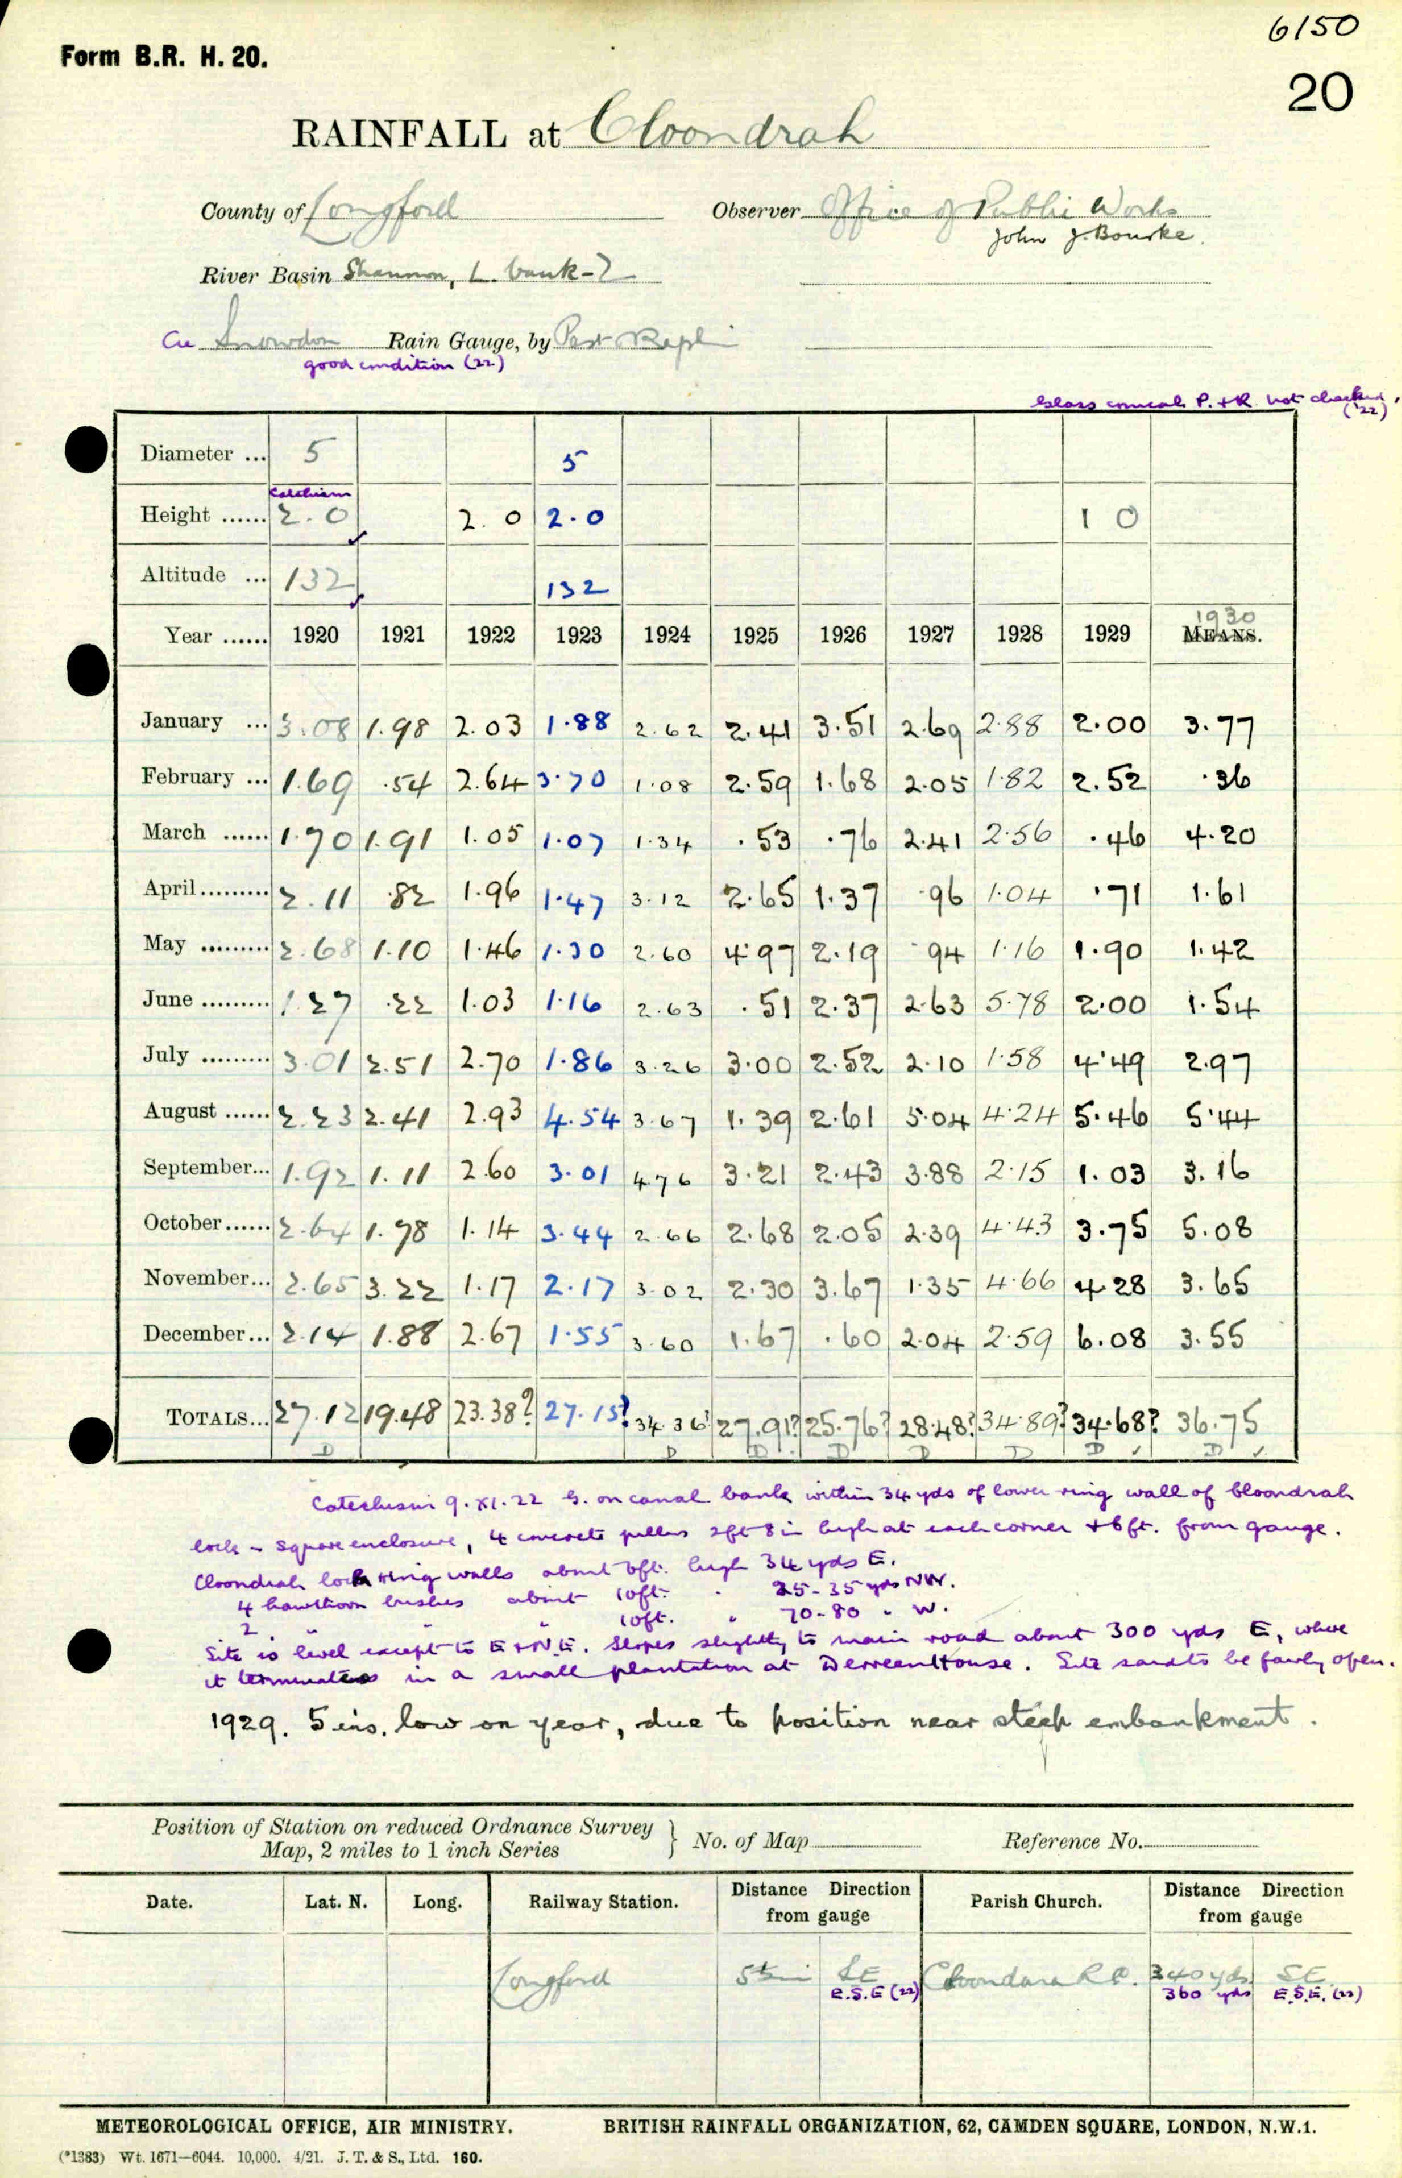 6150
Form B.R. H. 20.
20
RAINFALL at Cloondrah
County of Longford Observer Office of Public Works
John J. Bourke.
River Basin Shannon, L. bank-2
Cu Snowdon Rain Gauge, by Past
good condition (22)
Glass conical P. + R. not checked. ('22)
Diameter ... 5 5
Catechism
Height ...... 2.0 2.0 2.0 1 0
Altitude ... 132 132
1930
Year ...... 1920 1921 1922 1923 1924 1925 1926 1927 1928 1929 MEANS.
January ... 3.08 1.98 2.03 1.88 2.62 2.41 3.51 2.69 2.88 2.00 3.77
February ... 1.69 .54 2.64 3.70 1.08 2.59 1.68 2.05 1.82 2.52 .36
March ...... 1.70 1.91 1.05 1.07 1.34 .53 .76 2.41 2.56 .46 4.20
April ......... 2.11 .82 1.96 1.47 3.12 2.65 1.37 .96 1.04 .71 1.61
May ......... 2.68 1.10 1.46 1.30 2.60 4.97 2.19 .94 1.16 1.90 1.42
June ......... 1.27 .22 1.03 1.16 2.63 .51 2.37 2.63 5.78 2.00 1.54
July ......... 3.01 2.51 2.70 1.86 3.26 3.00 2.52 2.10 1.58 4.49 2.97
August ...... 2.23 2.41 2.93 4.54 3.67 1.39 2.61 5.04 4.24 5.46 5.44
September... 1.92 1.11 2.60 3.01 4.76 3.21 2.43 3.88 2.15 1.03 3.16
October ...... 2.64 1.78 1.14 3.44 2.66 2.68 2.05 2.39 4.43 3.75 5.08
November... 2.65 3.22 1.17 2.17 3.02 2.30 3.67 1.35 4.66 4.28 3.65
December... 2.14 1.88 2.67 1.55 3.60 1.67 .60 2.04 2.59 6.08 3.55
TOTALS... 27.12 19.48 23.38? 27.15? 34.36? 27.91? 25.76? 28.48? 34.89? 34.68? 36.75
D D D D D D D D
Catechism 9.XI.22 G. on canal bank within 34 yds of lower ring wall of Cloondrah
lock - square enclosure, 4 concrete pillars 2ft 8in high at each corner + 6ft. from gauge.
Cloondrah lock ring walls about 6ft. high 34 yds E.
4 hawthorn bushes about 10ft. " 25-35 yds NW.
2 " " 10ft. " 70-80 " W.
Site is level except to E + N.E. Slopes slightly to main road about 300 yds E, where
it terminates in a small plantation at Derreen House. Site said to be fairly open.
1929. 5 ins. low on year, due to position near steep embankment.
Position of Station on reduced Ordnance Survey
Map, 2 miles to 1 inch Series } No. of Map Reference No.
Date. Lat. N. Long. Railway Station. Distance Direction from gauge Parish Church. Distance Direction from gauge
Longford 5 mi SE Cloondara R.C. 340 yds. SE
E.S.E (22) 360 yds E.S.E. (22)
METEOROLOGICAL OFFICE, AIR MINISTRY. BRITISH RAINFALL ORGANIZATION, 62, CAMDEN SQUARE, LONDON, N.W.1.
(*1383) Wt. 1671—6044. 10,000. 4/21. J. T. & S., Ltd. 160.